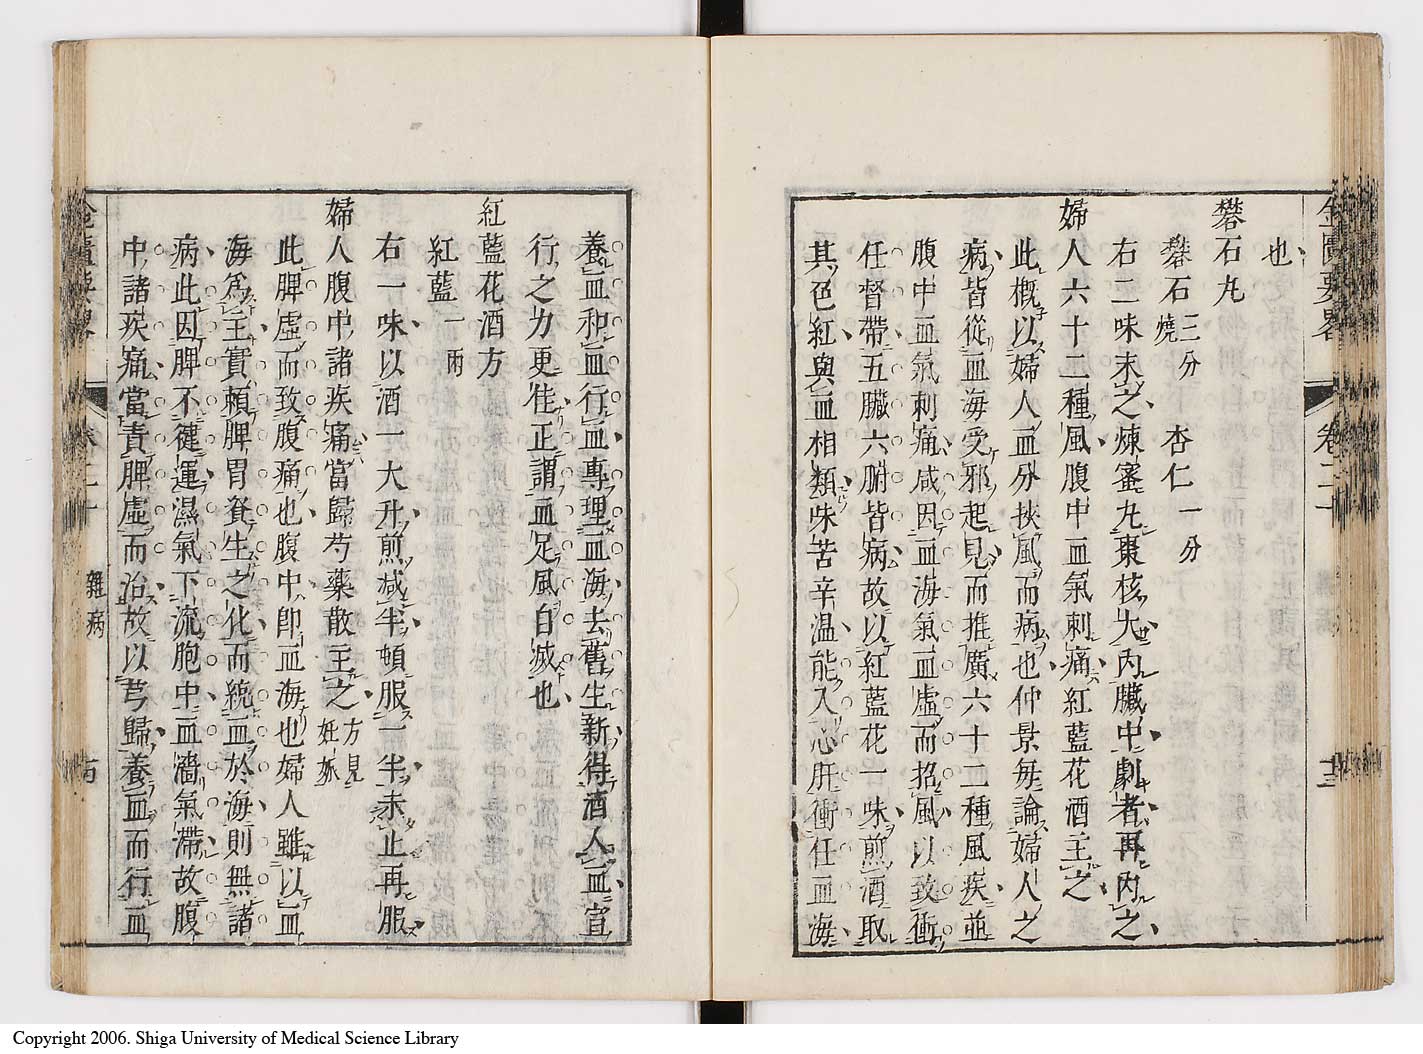 金匱要畧 卷二十
也
礬石丸
礬石三分燒 杏仁一分
右二味末之煉蜜丸棗核大內臟中劇者再內之
婦人六十二種風腹中血氣刺痛紅藍花酒主之
此概以婦人血分挾風而病也仲景每論婦人之
病皆從血海受邪起見而推廣六十二種風疾並
腹中血氣刺痛咸因血海氣血虛而招風以致衝
任督帶五臟六腑皆病故以紅藍花一味煎酒取
其色紅與血相類味苦辛溫能入心肝衝任血海
養血和血行血專理血海去舊生新得酒入血宣
行之力更佳正謂血足風自滅也
紅藍花酒方
紅藍一兩
右一味以酒一大升煎減半頓服一半未止再服
婦人腹中諸疾痛當歸芍藥散主之方見妊娠
此脾虛而致腹痛也腹中卽血海也婦人雖以血
海爲主實賴脾胃資生之化而統血於海則無諸
病此因脾不健運濕氣下流胞中血濇氣滯故腹
中諸疾痛當責脾虛而治故以芎歸養血而行血
雜病
Copyright 2006. Shiga University of Medical Science Library